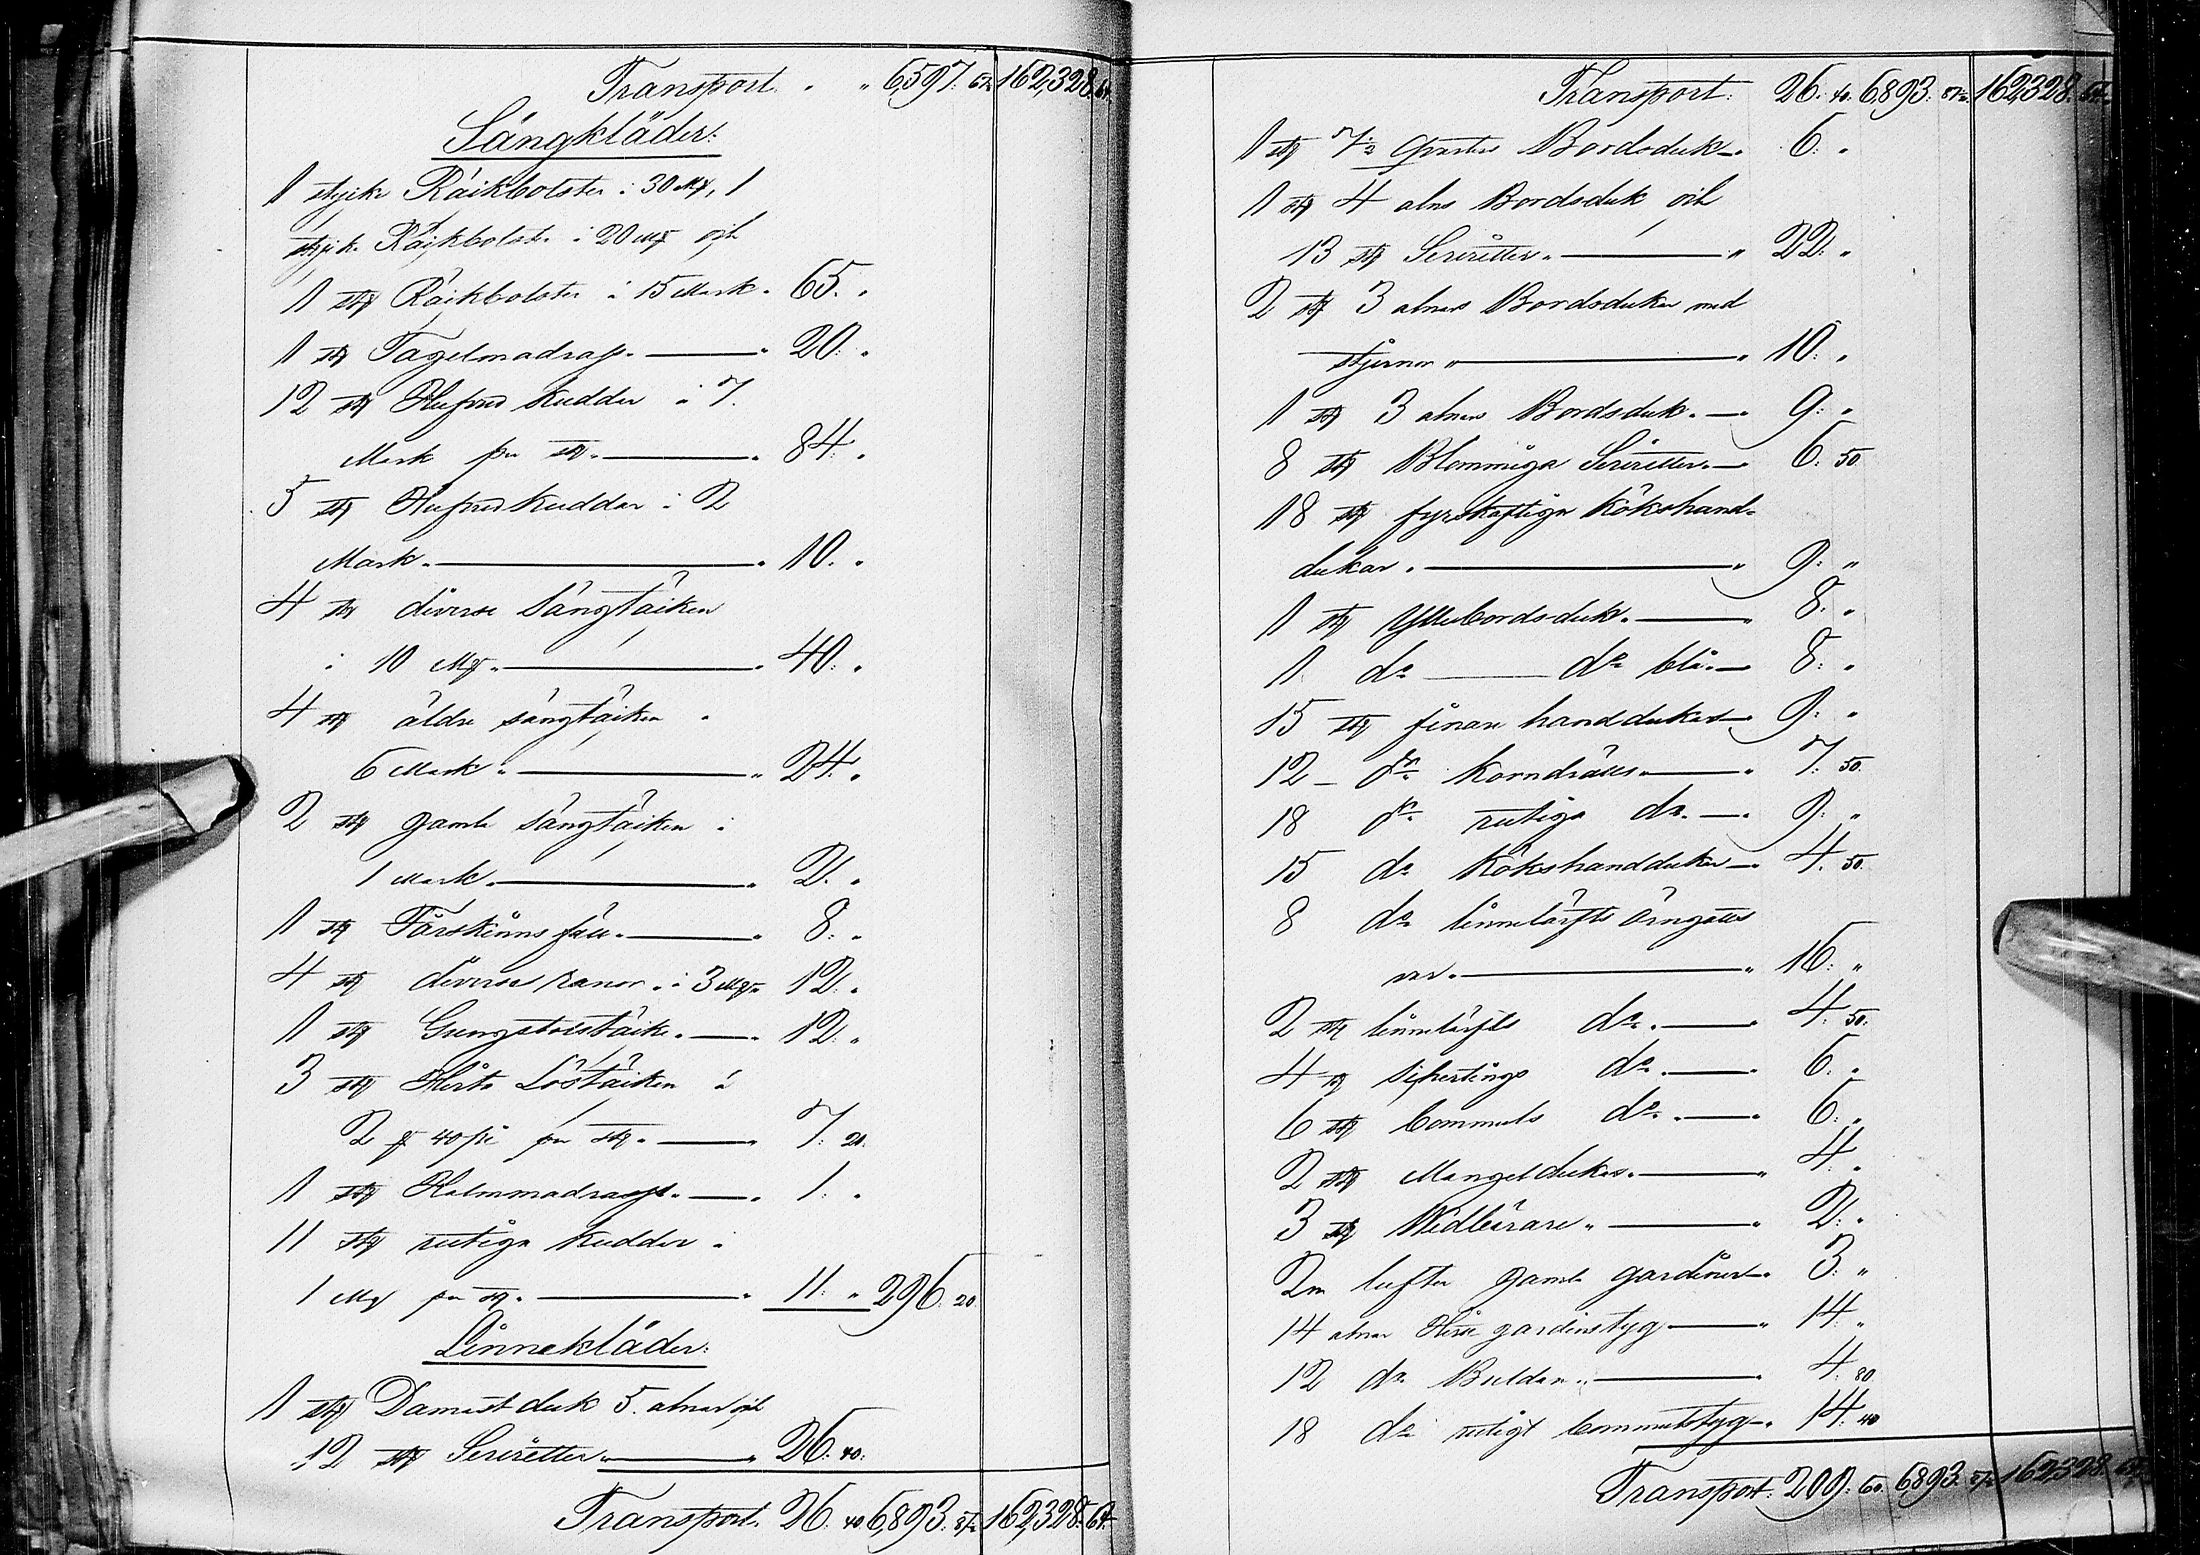 Transport. „ „ 6,597: 67. 162,328. 64.
Sängkläder:
1 styck Räikbolster á 30 Mk, 1
styck Räikbolster á 20 Mk och
1 stk Räikbolster á 15 Mark. 65. „
1 stk Tagelmadrass. „ 20: „
12 stk Hufvud kuddar á 7.
Mark per stk. „ 84. „
5 stk Hufvud kuddar á 2
Mark. „ 10. „
4 stk diverse sängtäcken
á 10 Mk. „ 40: „
4 stk äldre sängtäcken „
6 Mark „ „ 24. „
2 stk gamla sängtäcken á
1 Mark. „ 2. „
1 stk Fårskinns fäll. „ 8: „
4 stk diverse ranor. á 3 Mk. 12. „
1 stk Gungstolstäcke. „ 12: „
3 stk Hvita Löstäcken á
2 Mk 40 pi per stk. „ 7: 20.
1 stk Halmmadrass. „ 1. „
11 stk rutiga kuddar á
1 Mk per stk. „ 11: „ 296. 20.
Linnekläder:
1 stk Damast duk 5. alnar och
12 stk Servietter „ 26: 40.
Transport. 26. 40 6,893: 87. 162,328. 64.
Transport: 26. 40. 6,893: 87. 162,328. 64.
1 stk 7/2 qvarters Bordsduk. 6: „
1 stk 4 alns Bordsduk och
13 stk Servietter „ „ 22: „
2 stk 3 alnars Bordsdukar med
stjernor „ „ 10: „
1 stk 3 alnars Bordsduk. „ 9: „
8 stk Blommiga Servietter „ 6: 50.
18 stk fyrskaftiga Kökshand-
dukar. „ 9: „
1 stk Yllebordsduk. „ 8: „
1 do do blå. 8: „
15 stk finare handdukar 9: „
12 – do korndräll „ 7: 50.
18 do rutiga do. 9: „
15 do Kökshanddukar 4. 50.
8 do linnelärfts örngotts
var. „ 16: „
2 stk linnelärfts do. „ 4: 50.
4 stk do. „ 6: „
6 stk bommuls do. „ 6: „
2 stk Mangeldukar. „ 4: „
3 stk Vedbärare „ „ 2: „
2 lufter gamla gardiner 3: „
14 alnar Hvitt gardinstyg „ 14: „
12 do Buldan „ „ 4: 80.
18 do rutigt bommulstyg 14: 40
Transport: 209: 60. 6,893: 87. 162,328. 64.